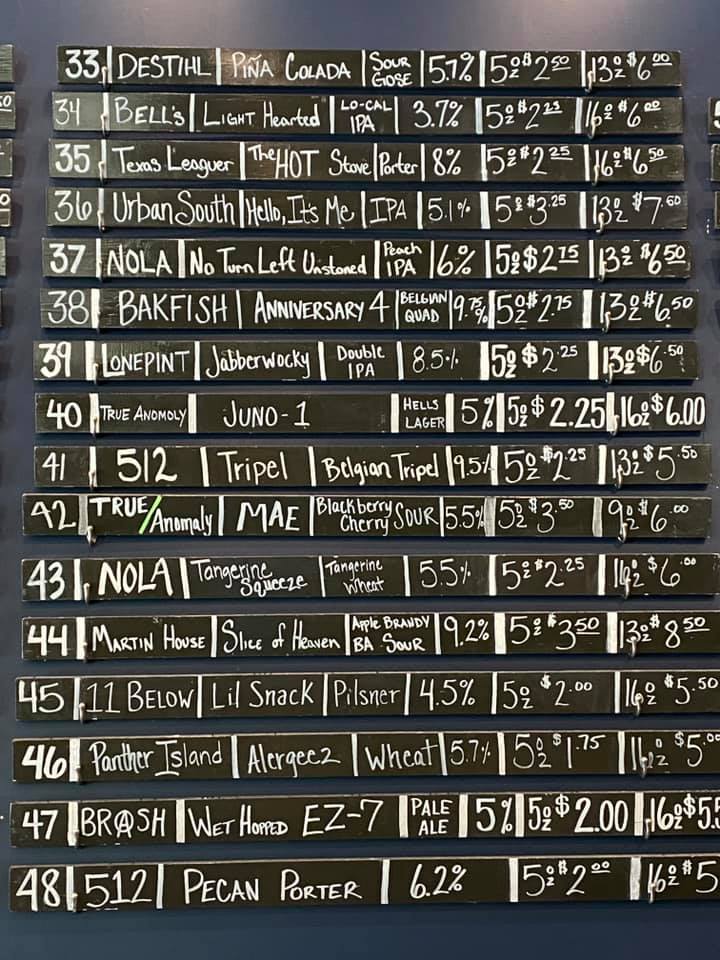 33 DESTIHL PIÑA COLADA SOUR GOSE 5.7% 5oz $2.50 13oz $6.00
34 BELL'S LIGHT Hearted LO-CAL IPA 3.7% 5oz $2.25 16oz $6.00
35 Texas Leaguer The HOT Stove Porter 8% 5oz $2.25 16oz $6.50
36 Urban South Hello, It's Me IPA 5.1% 5oz $3.25 13oz $7.60
37 NOLA No Turn Left Unstoned Peach IPA 6% 5oz $2.75 13oz $6.50
38 BAKFISH ANNIVERSARY 4 BELGIAN QUAD 9.75% 5oz $2.75 13oz $6.50
39 LONEPINT Jabberwocky Double IPA 8.5% 5oz $2.25 13oz $6.50
40 TRUE ANOMOLY JUNO-1 HELLS LAGER 5% 5oz $2.25 16oz $6.00
41 512 Tripel Belgian Tripel 9.5% 5oz $2.25 13oz $5.50
42 TRUE/Anomaly MAE Blackberry Cherry SOUR 5.5% 5oz $3.50 9oz $6.00
43 NOLA Tangerine Squeeze Tangerine Wheat 5.5% 5oz $2.25 16oz $6.00
44 MARTIN HOUSE Slice of Heaven Apple BRANDY BA SOUR 9.2% 5oz $3.50 13oz $8.50
45 11 BELOW Lil Snack Pilsner 4.5% 5oz $2.00 16oz $5.50
46 Panther Island Alergeez Wheat 5.7% 5oz $1.75 16oz $5.00
47 BRASH WET HOPPED EZ-7 PALE ALE 5% 5oz $2.00 16oz
48 512 PECAN PORTER 6.2% 5oz $2.00 16oz $5